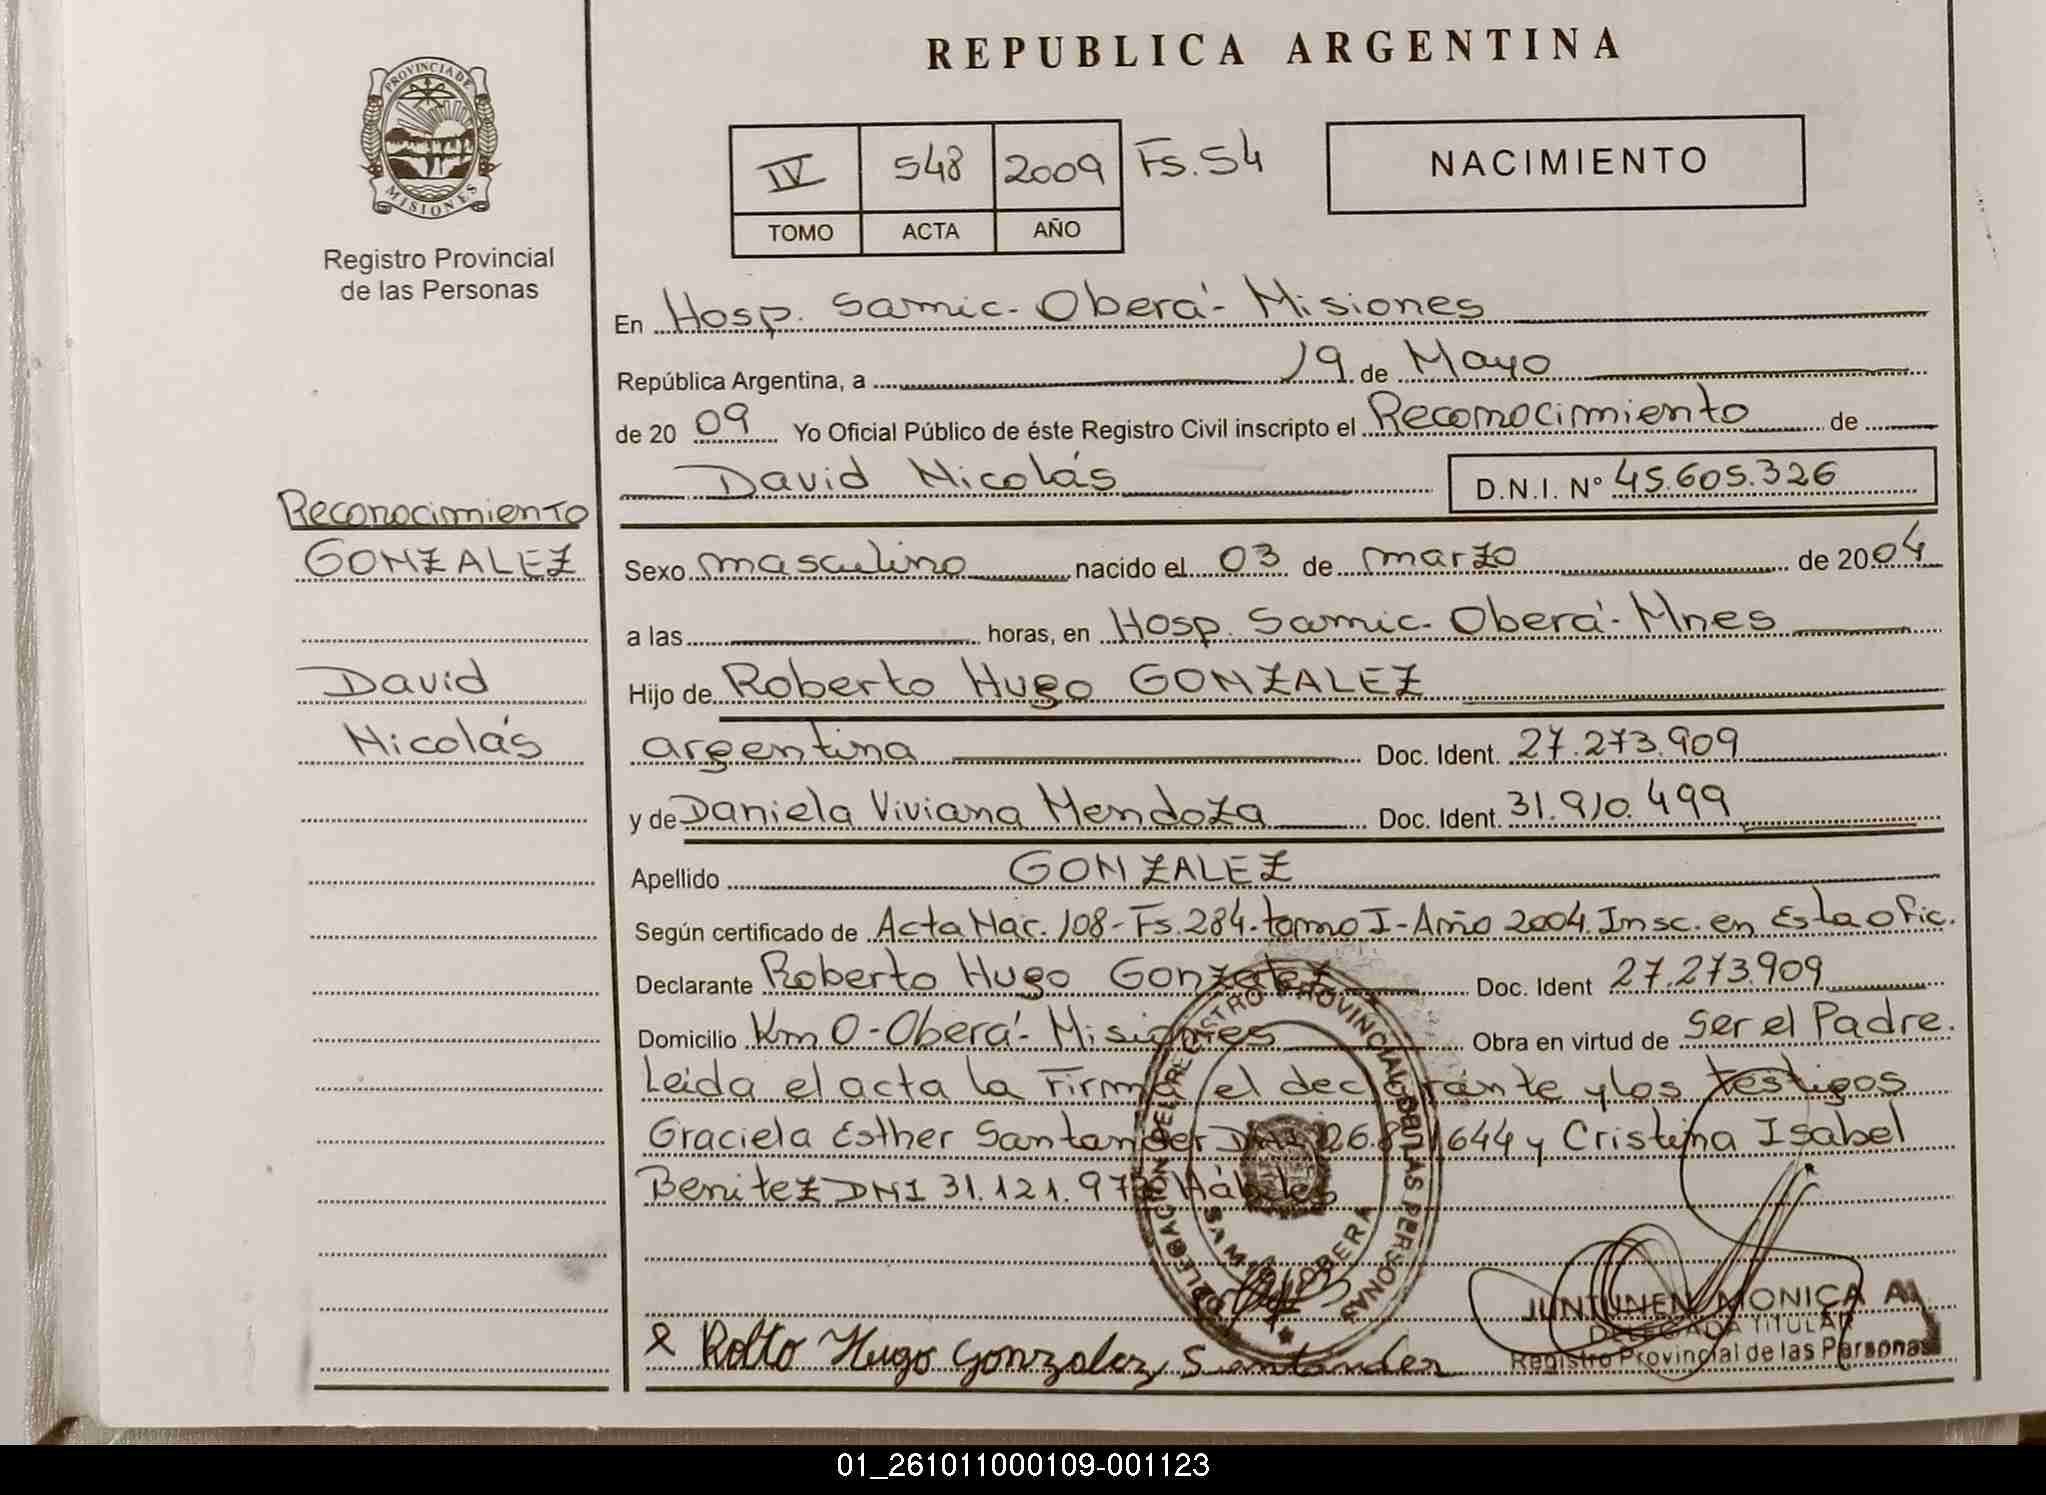 REPUBLICA ARGENTINA
PROVINCIA DE
MISIONES
Registro Provincial
de las Personas
IV 548 2009 Fs. 54
TOMO ACTA AÑO
NACIMIENTO
En Hosp. Samic- Oberá- Misiones
República Argentina, a 19 de Mayo
de 2009 Yo Oficial Público de éste Registro Civil inscripto el Reconocimiento de
David Nicolás D.N.I. N° 45.605.326
Reconocimiento
GONZALEZ
David
Nicolás
Sexo masculino nacido el 03 de marzo de 2004
a las horas, en Hosp. Samic- Oberá- Mnes
Hijo de Roberto Hugo GONZALEZ
argentina Doc. Ident. 27.273.909
y de Daniela Viviana Mendoza Doc. Ident. 31.910.499
Apellido GONZALEZ
Según certificado de Acta Nac. 108- Fs. 284. tomo I- Año 2004. Insc. en Esta ofic.
Declarante Roberto Hugo Gonzalez Doc. Ident 27.273.909
Domicilio Km 0- Oberá- Misiones Obra en virtud de Ser el Padre.
Leida el acta la Firma el declarante y los testigos
Graciela Esther Santander DNI 644 y Cristina Isabel
Benitez DNI 31.121. Hábiles
DELEGACION DEL REGISTRO PROVINCIAL DE LAS PERSONAS
OBERA
Robto Hugo Gonzalez Santander
JUNTUNEN MONICA A.
DELEGADA TITULAR
Registro Provincial de las Personas
01_261011000109-001123